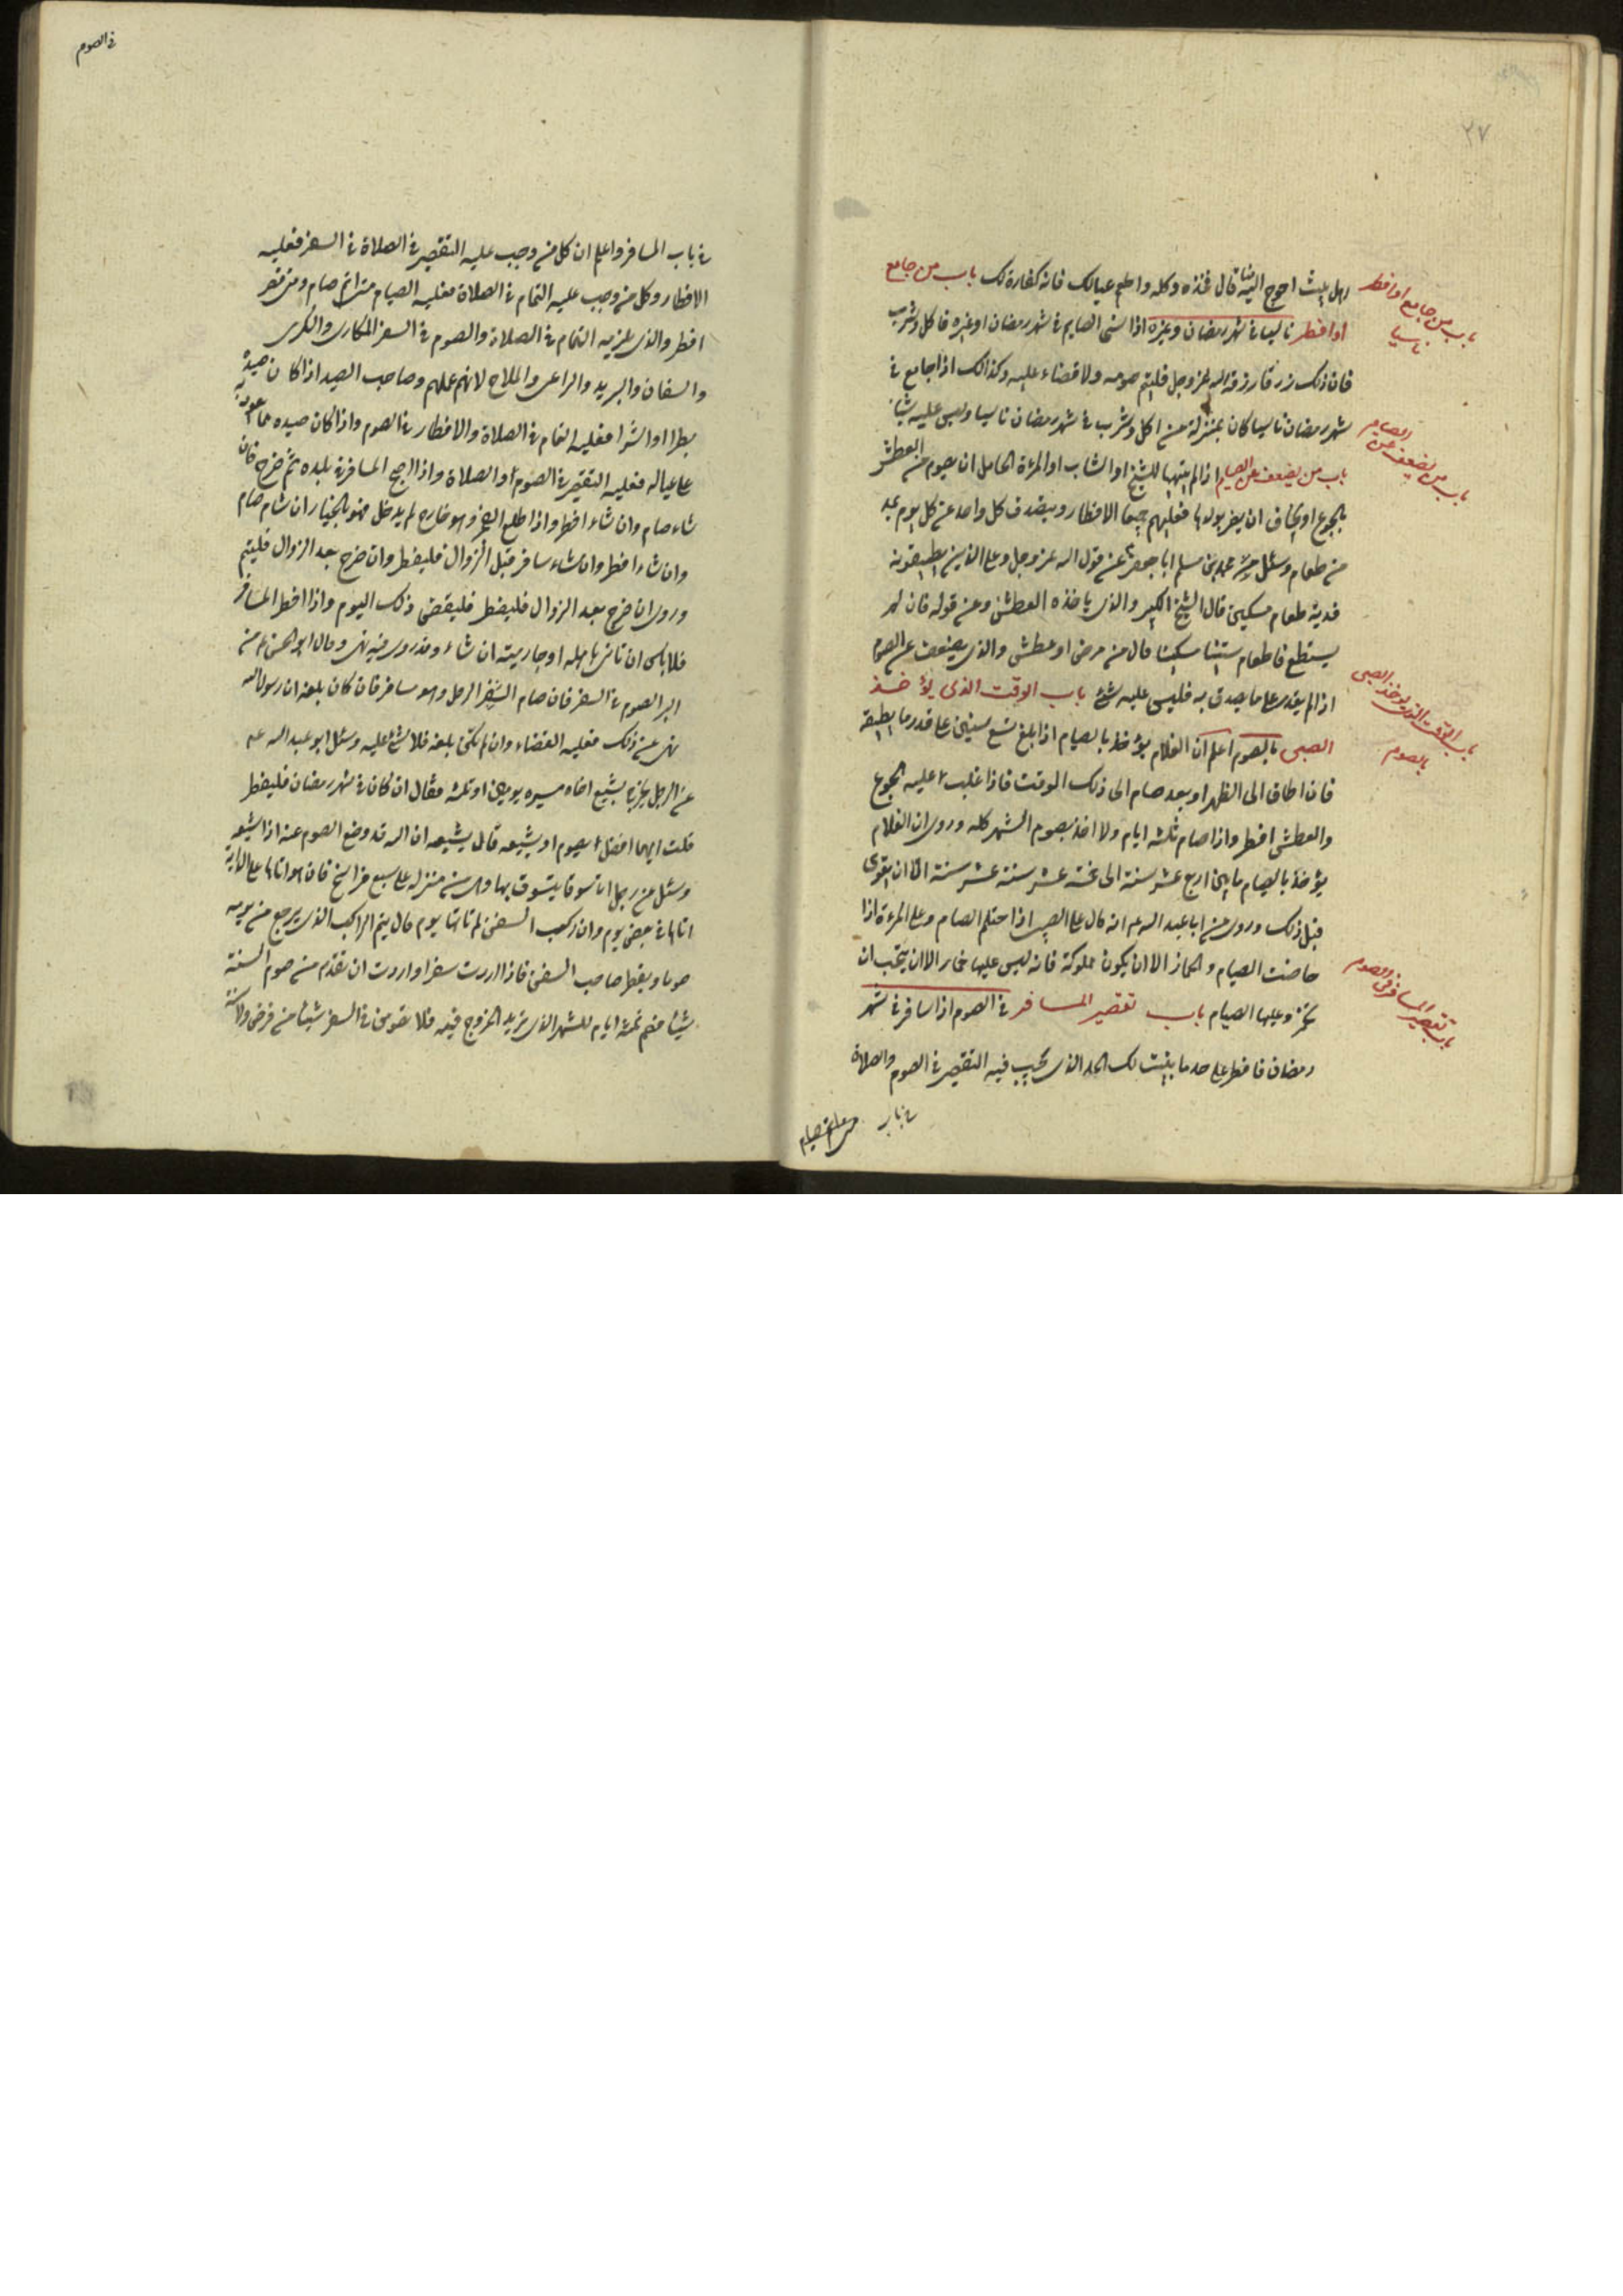 ٢٧
اهل بيت احوج اليه منا قال فخذه وكله واطعم عيالك فانه كفارة لك باب من جامع
او افطر ناسيا في شهر رمضان وغيره اذا نسى الصايم في شهر رمضان او غيره فاكل وشرب
فان ذلك رزق رزقه الله عز وجل فليتم صومه ولا قضاء عليه وكذلك اذا جامع في
شهر رمضان ناسيا كان بمنزلة من اكل وشرب في شهر رمضان ناسيا وليس عليه شيء
باب من يضعف عن الصيام اذا لم يتهيا للشيخ او الشاب او المرءة الحامل ان يصوم من العطش
والجوع او تخاف ان يضر بولدها فعليهم جميعا الافطار ويتصدق كل واحد عن كل يوم بمد
من طعام وسئل محمد بن مسلم ابا جعفر عن قول الله عز وجل وعلى الذين يطيقونه
فدية طعام مسكين قال الشيخ الكبير والذي ياخذه العطش وعن قوله فان لم
يستطع فاطعام ستين مسكينا قال من مرض او عطش والذي يضعف عن الصوم
اذا لم يقدر على ما يصدق به فليس عليه شئ باب الوقت الذى يؤخذ
الصبى بالصوم اعلم ان الغلام يؤخذ بالصيام اذا بلغ تسع سنين على قدر ما يطيقه
فان اطاق الى الظهر او بعد صام الى ذلك الوقت فاذا غلب عليه الجوع
والعطش افطر واذا صام ثلثه ايام ولا اخذ بصوم الشهر كله وروى ان الغلام
يؤخذ بالصيام ما بين اربع عشر سنة الى خمسة عشر سنة عشر سنة الا ان يقوى
قبل ذلك وروى عن ابا عبد الله عم انه قال على الصبى اذا احتلم الصيام وعلى المرءة اذا
حاضت الصيام والخمار الا ان يكون مملوكة فانه ليس عليها خمار الا ان يحب ان
تختمر وعليها الصيام باب تقصير المسافر في الصوم اذا سافر في شهر
رمضان فافطر على حد ما بينت لك الحد الذى يجب فيه التقصير في الصوم والصلاة
في باب
باب من جامع او افطر
ناسيا
باب من يضعف عن
الصيام
باب الوقت الذى يؤخذ الصبى
بالصوم
باب تقصير المسافر في الصوم
في الصوم
في باب المسافر واعلم ان كل من وجب عليه التقصير في الصلاة في السفر فعليه
الافطار وكل من وجب عليه التمام في الصلاة فعليه الصيام متى اتم صام ومتى قصر
افطر والذى يلزمه التمام في الصلاة والصوم في السفر المكارى والكرى
والسفان والبريد والراعى والملاح لانه عملهم وصاحب الصيد اذا كان صيده
بطرا او اشرا فعليه التمام في الصلاة والافطار في الصوم واذا كان صيده مما يعود به
على عياله فعليه التقصير في الصوم او الصلاة واذا اصبح المسافر في بلده ثم خرج فان
شاء صام وان شاء افطر واذا طلع الفجر وهو خارج لم يدخل فهو بالخيار ان شاء صام
وان شاء افطر وان شاء سافر قبل الزوال فليفطر وان خرج بعد الزوال فليتم
وروى ان خرج بعد الزوال فليفطر فليقضى ذلك اليوم واذا افطر المسافر
فلا باس ان ياتى باهله او جاريته ان شاء وقد روى فيه نهى وقال ابو الحسن ع من
البر الصوم في السفر فان صام السفر الرجل وهو مسافر فان كان بلغه ان رسول الله
نهى عن ذلك فعليه القضاء وان لم يكن بلغه فلا شئ عليه وسئل ابو عبد الله عم
عن الرجل يخرج يشيع اخاه مسيره يومين او ثلثه فقال ان كان في شهر رمضان فليفطر
قلت ايهما افضل يصوم او يشيعه قال يشيعه ان الله قد وضع الصوم عنه اذا شيعه
وسئل عن رجل اتا سوقا يتسوق بها وهى من منزله على سبع فراسخ فان هو اتاها على الدابة
اتاها في بعض يوم وان ركب السفن لم تاتها يوم قال يتم الراكب الذى يرجع من يومه
صوما ويفطر صاحب السفن فاذا اردت سفرا واردت ان تقدم من صوم السنة
شيئا فصم ثلثه ايام للشهر الذى تريد الخروج فيه فلا تصومن في السفر شيئا من فرض ولا سنة